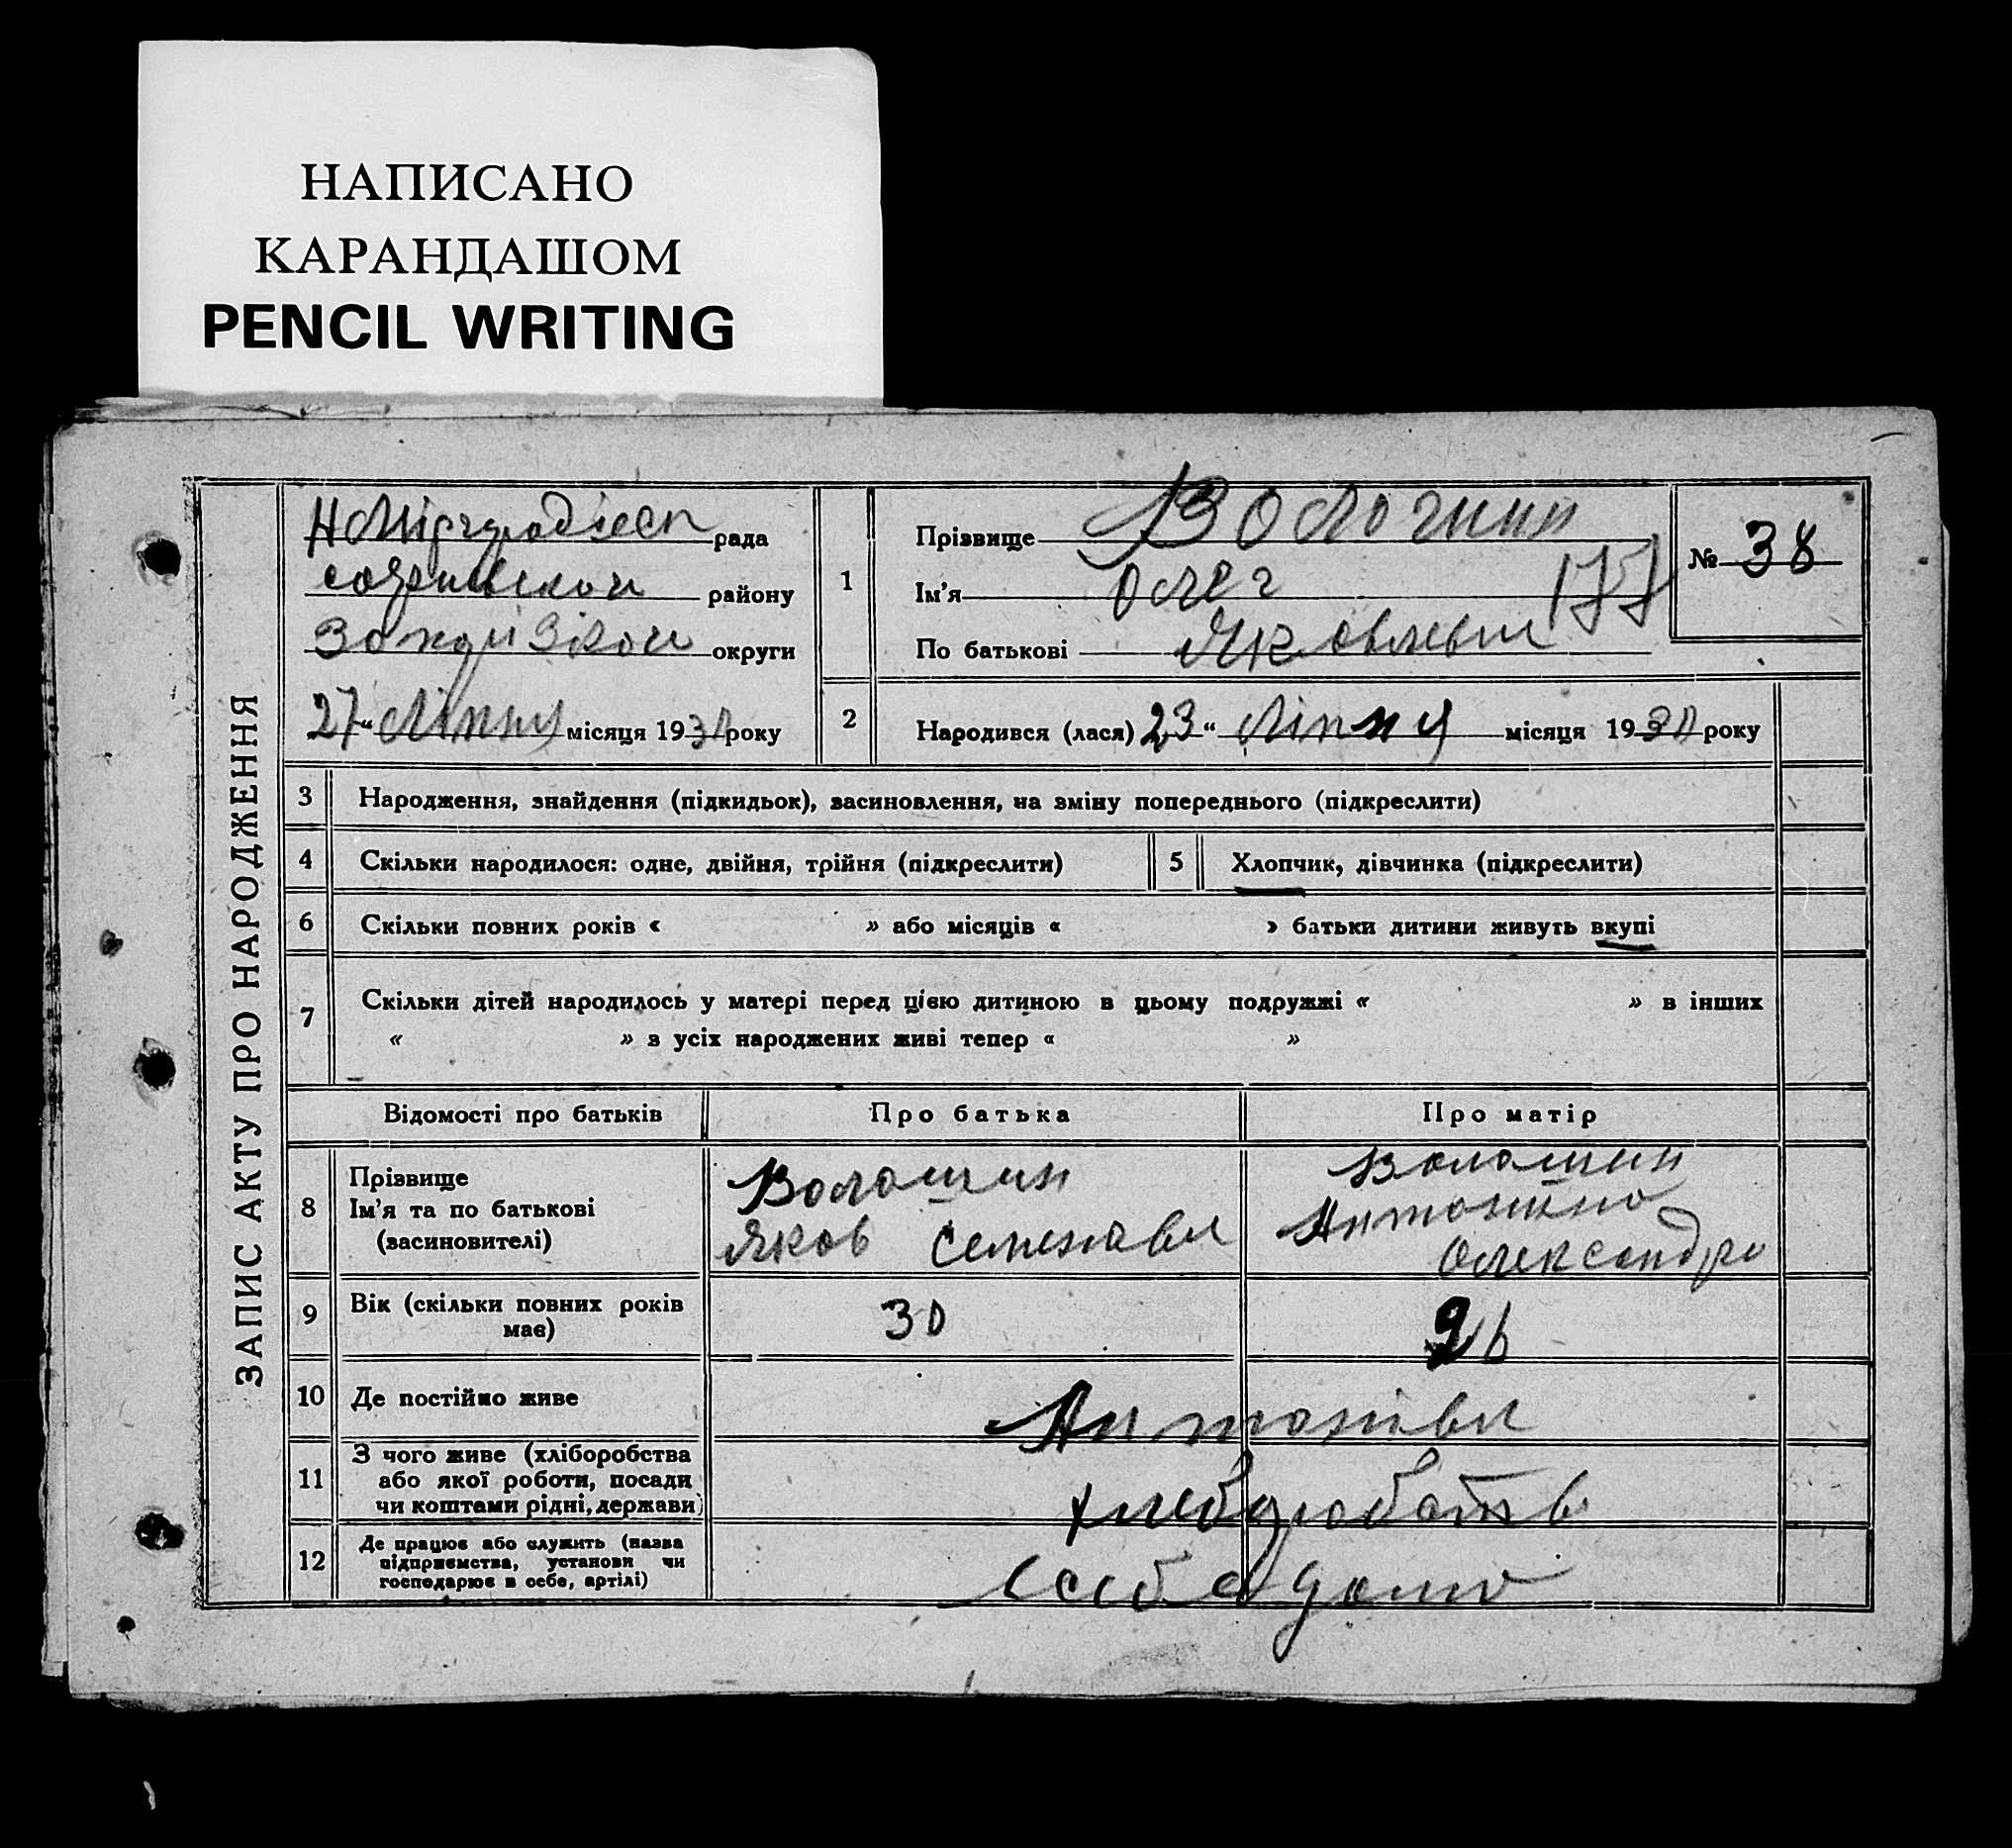 НАПИСАНО
КАРАНДАШОМ
PENCIL WRITING
ЗАПИС АКТУ ПРО НАРОДЖЕННЯ
рада
району
округи
27 “ Ліпню місяця 1930 року
1
Прізвище Волошин
Ім'я Олег
По батькові Яковлевич
№ 38
2
Народився (лася) 23 “ Ліпню місяця 1930 року
3 Народження, знайдення (підкидьок), засиновлення, на зміну попереднього (підкреслити)
4 Скільки народилося: одне, двійня, трійня (підкреслити)
5 Хлопчик, дівчинка (підкреслити)
6 Скільки повних років « » або місяців « » батьки дитини живуть вкупі
7 Скільки дітей народилось у матері перед цією дитиною в цьому подружжі « » в інших
« » з усіх народжених живі тепер « »
Відомості про батьків Про батька Про матір
8 Прізвище
Ім'я та по батькові
(засиновителі)
Волошин
Яков Семенови
Волошин
Антонино
Олександро
9 Вік (скільки повних років
має)
30
26
10 Де постійно живе Антонівки
11 З чого живе (хліборобства
або якої роботи, посади
чи коштами рідні, держави)
хлеборобств
12 Де працює або служить (назва
підприємства, установи чи
господарює в себе, артілі)